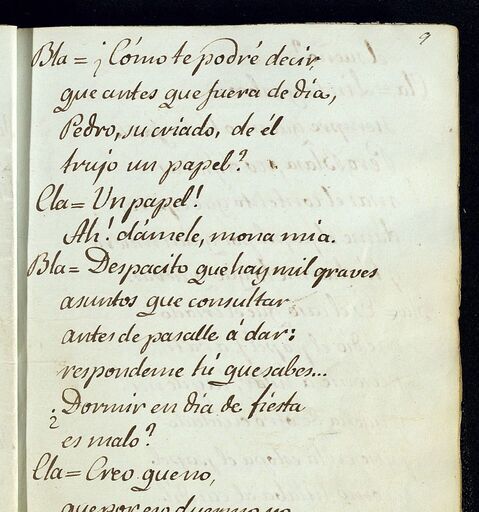 9
Bla = ¿Cómo te podré decir,
que antes que fuera de día,
Pedro, su criado, de él
trujo un papel?
Cla = Un papel!
Ah! dámele, mona mia.
Bla = Despacito que hay mil graves
asuntos que consultar
antes de pasalle á dar:
respondeme tú que sabes...
¿Dormir en día de fiesta
es malo?
Cla = Creo que no,
que por eso